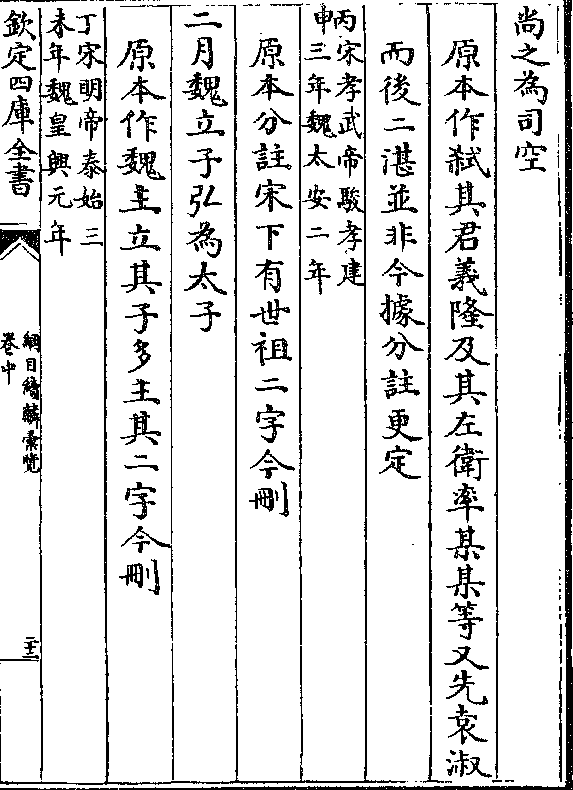 尚之為司空
原本作弑其君義隆及其左衛率某某等又先袁淑
而後二湛並非今據分註更定
丙宋孝武帝駿孝建
申三年魏太安二年
原本分註宋下有世祖二字今刪
二月魏立子弘為太子
原本作魏主立其子多主其二字今刪
丁宋明帝泰始三
未年魏皇興元年
欽定四庫全書
綱目續麟彙覽
卷中
二十三